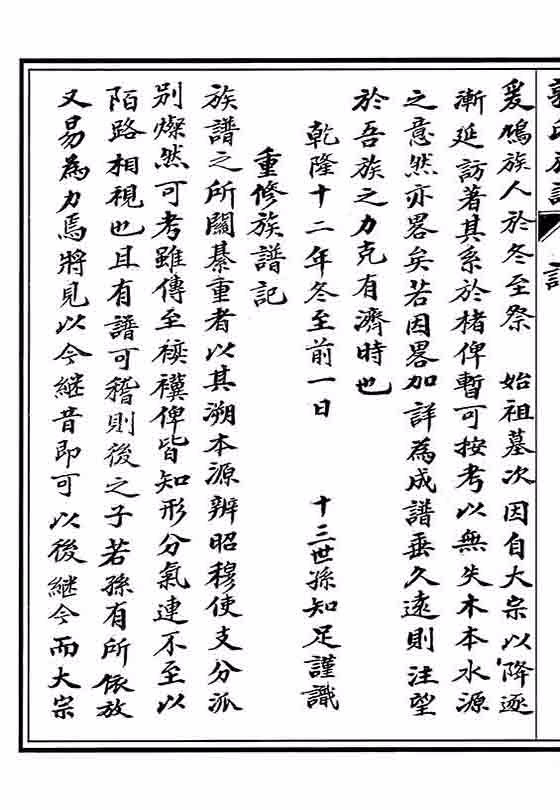 郭氏族譜
記
爰鳩族人於冬至祭 始祖墓次因自大宗以降逐
漸延訪著其系於楮俾暫可按考以無失木本水源
之意然亦畧矣若因畧加詳為成譜垂久遠則注望
於吾族之力克有濟時也
乾隆十二年冬至前一日 十三世孫知足謹識
重修族譜記
族譜之所關綦重者以其溯本源辨昭穆使支分派
別燦然可考雖傳至襍襀俾皆知形分氣連不至以
陌路相視也且有譜可稽則後之子若孫有所依放
又易為力焉將見以今繼昔即可以後繼今而大宗